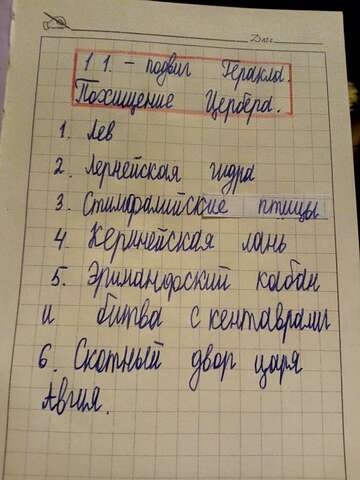 Дата
11. - подвиг Геракла.
Похищение Цербера.
1. Лев
2. Лернейская гидра
3. Стимфалийские птицы
4. Керинейская лань
5. Эриманфский кабан
и битва с кентаврами
6. Скотный двор царя
Авгия.